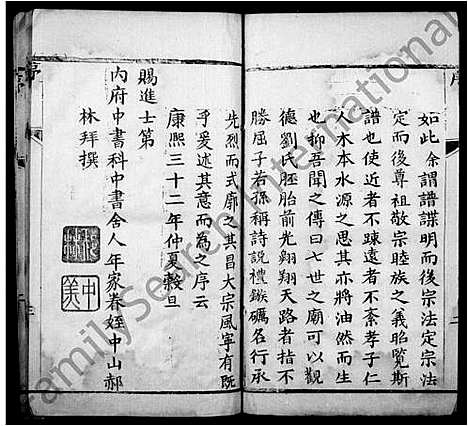 如此余謂譜諜明而後宗法定宗法
定而後尊祖敬宗睦族之義昭覽斯
譜也使近者不踈遠者不紊孝子仁
人木本水源之思其亦將油然而生
也抑吾聞之傳曰七世之廟可以觀
德劉氏胚胎前光翱翔天路者指不
勝屈子若孫稱詩說禮鏃礪名行承
先烈而式廓之其昌大宗風寧有既
乎爰述其意而為之序云
康熙三十二年仲夏穀旦
賜進士第
內府中書科中書舍人年家眷姪中山郝
林拜撰
序
FamilySearch International